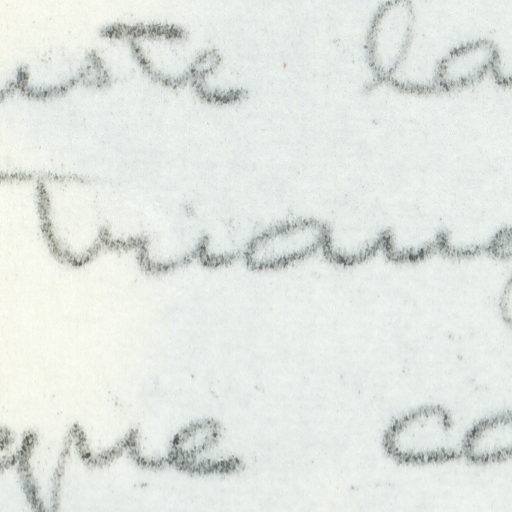 uste la
Triang
que co